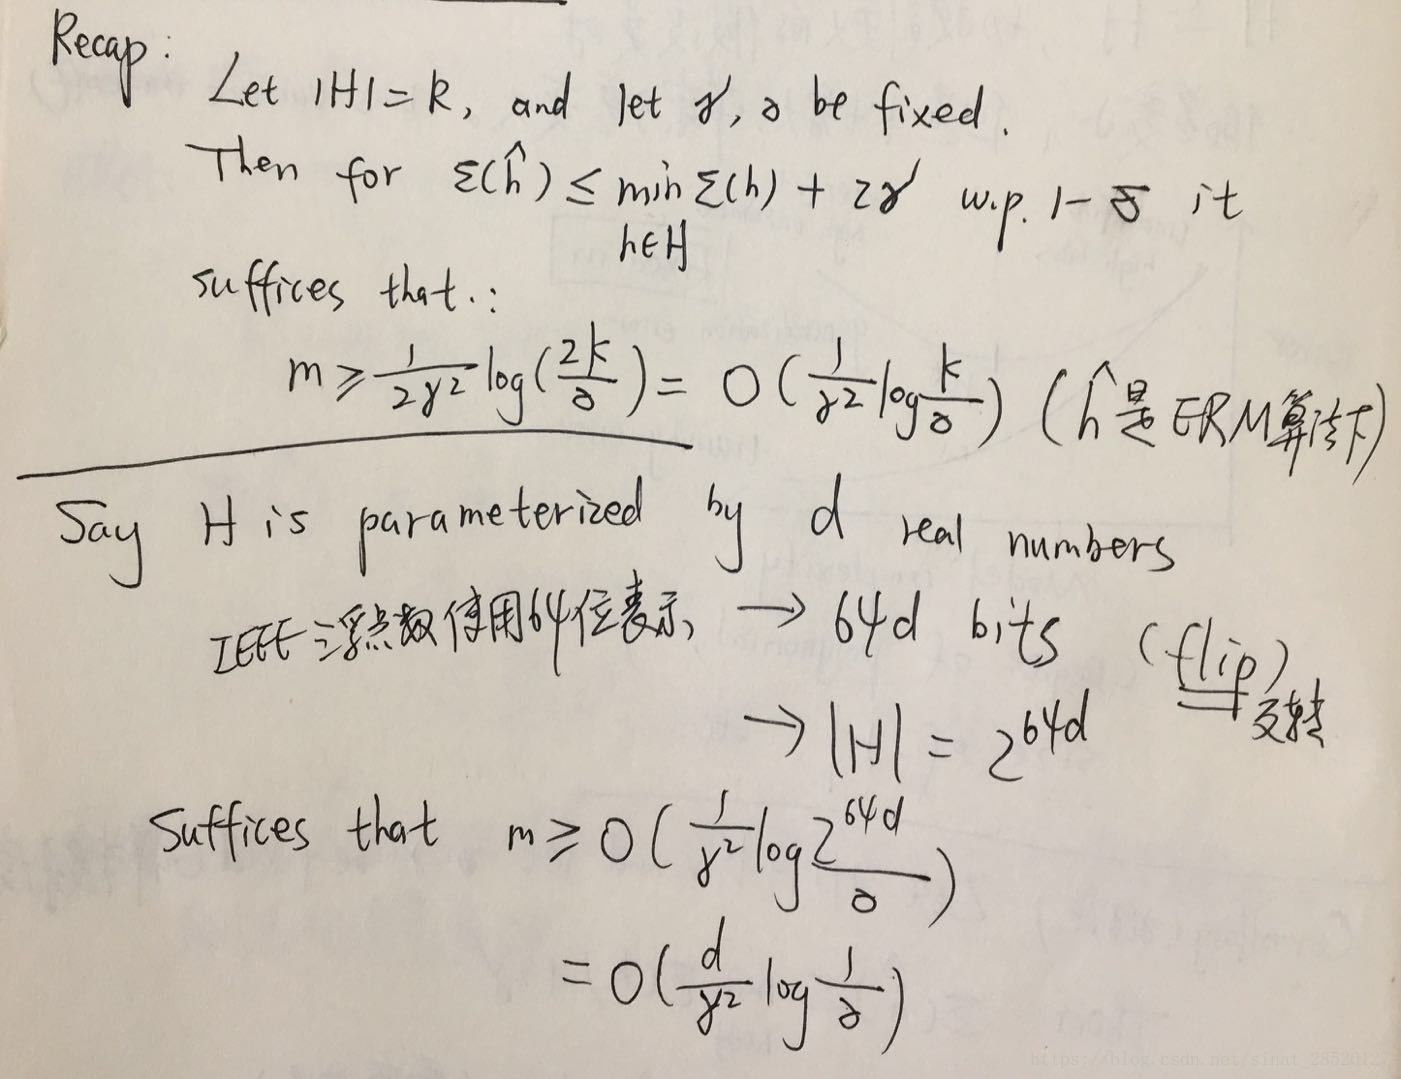 Recap:
Let |H| = k, and let γ, δ be fixed.
Then for Σ(ĥ) ≤ min Σ(h) + 2γ w.p. 1 - δ it
h∈H
suffices that.:
m ≥ 1/2γ² log(2k/δ) = O(1/γ² log k/δ) (ĥ是ERM算法下)
Say H is parameterized by d real numbers
IEEE浮点数使用64位表示, → 64d bits (flip)
反转
→ |H| = 2^64d
Suffices that m ≥ O(1/γ² log 2^64d/δ)
= O(d/γ² log 1/δ)